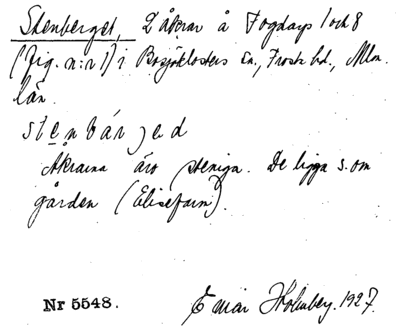 Stenberget, 2 åkrar å Fogdarps 1 och 8
(Fig. n:r 1) i Bosjöklosters sn., Frosta hd., Mlm.
län.
stẹnbárjed
Åkrarna äro steniga. De ligga s. om
gården (Elisefarm).
Nr 5548. Einar Holmberg. 1927.